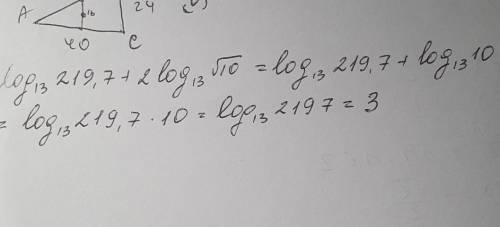 A
16
24
40
C
log₁₃ 219,7 + 2 log₁₃ √10 = log₁₃ 219,7 + log₁₃ 10
= log₁₃ 219,7 · 10 = log₁₃ 2197 = 3